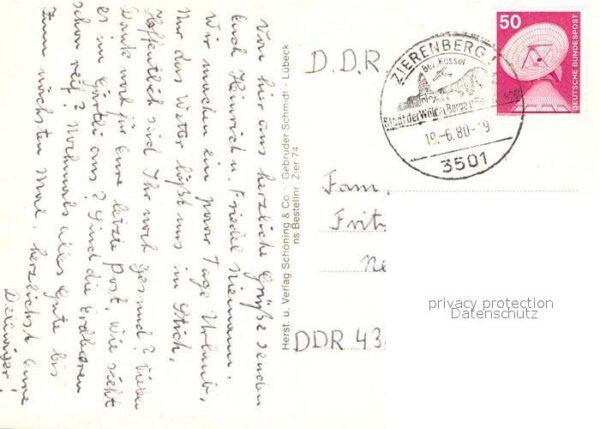 Von hier aus herzliche Grüße senden
Euch Heinrich u. Friedel Niemann.
Wir machen ein paar Tage Urlaub,
Nur das Wetter läßt uns im Stich.
Hoffentlich sind Ihr noch gesund? Vielen
Dank noch für Eure letzte Post. Wie sieht
es im Garten aus? Sind die Erdbeeren
schon reif? Nochmals alles Gute bis
zum nächsten Mal. herzlichst Eure
Herst. u. Verlag Schöning & Co · Gebrüder Schmidt · Lübeck
ns Bestellnr Zier 74
D.D.R
ZIERENBERG 1
Bez Kassel
Stadt der
19.-6.80.-9
3501
50
DEUTSCHE BUNDESPOST
Fam.
Frit
Ne
DDR 43
privacy protection
Datenschutz